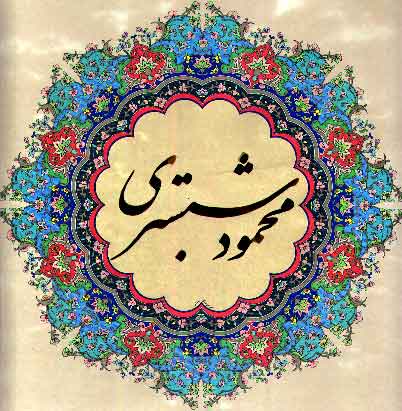 محمود شبستری